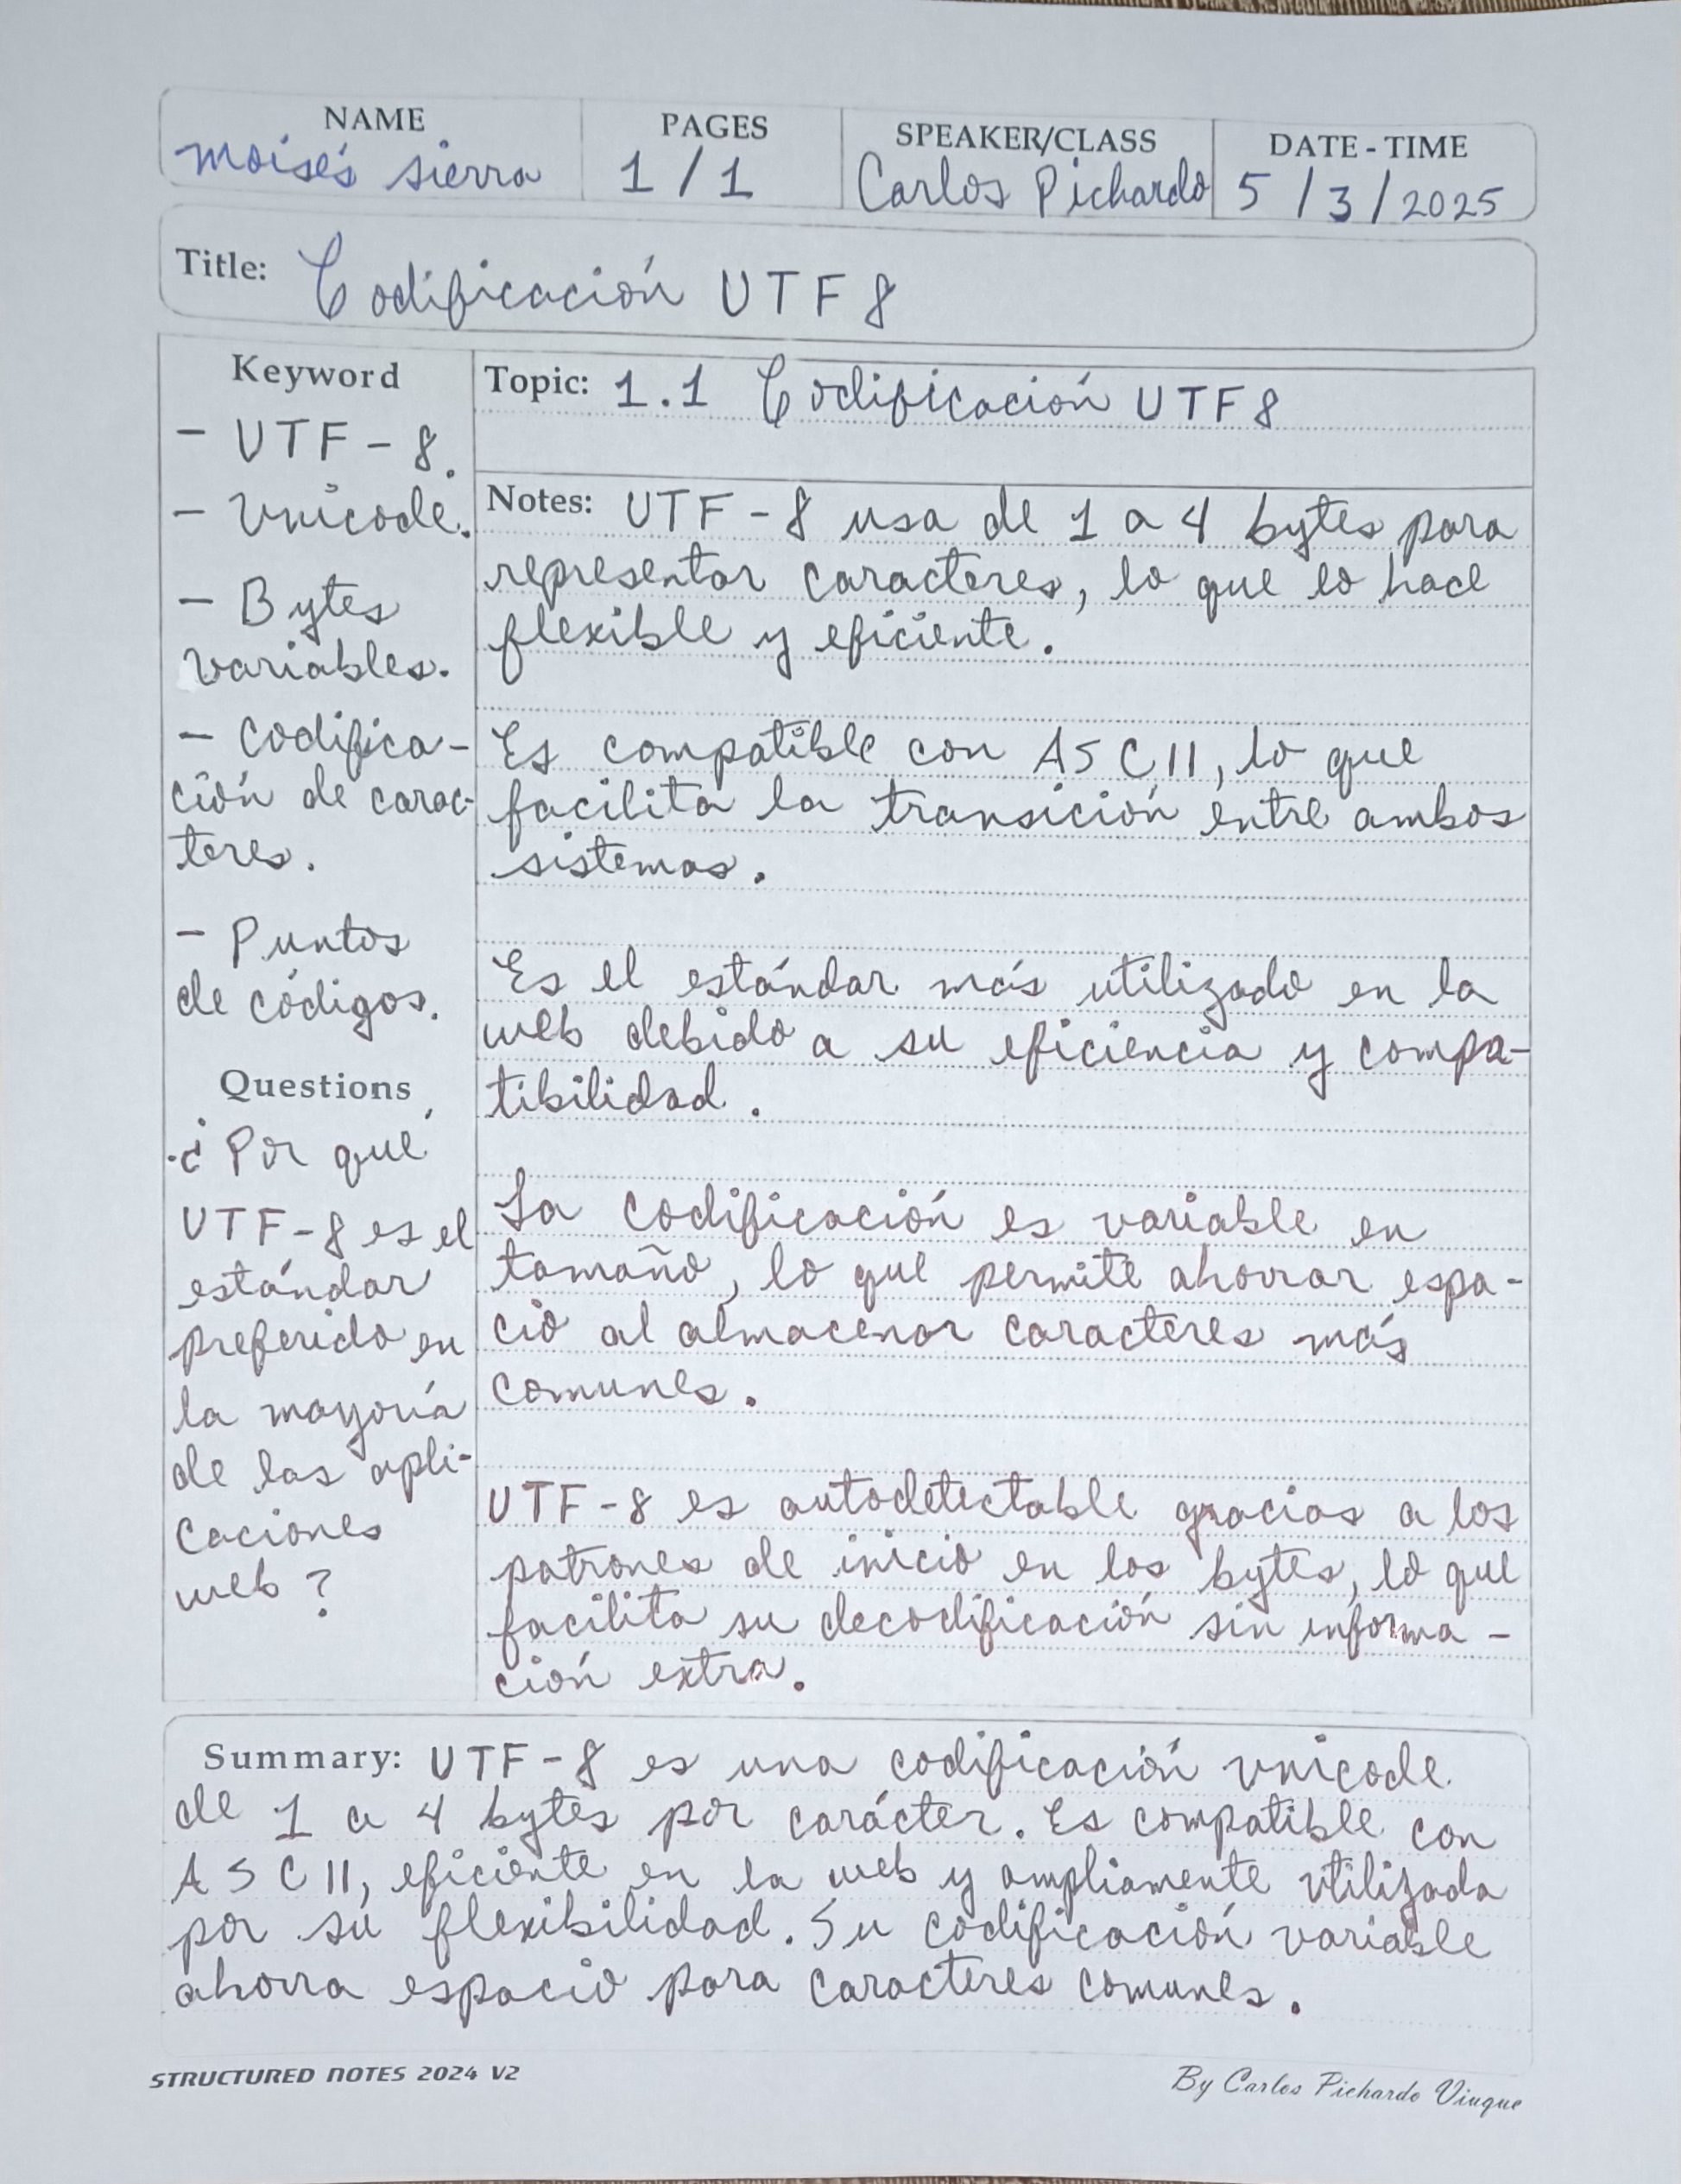 NAME
Moisés Sierra
PAGES
1 / 1
SPEAKER/CLASS
Carlos Pichardo
DATE - TIME
5 / 3 / 2025
Title: Codificación UTF8
Keyword
- UTF - 8.
- Unicode.
- Bytes
variables.
- Codifica-
ción de carac-
teres.
- Puntos
de códigos.
Questions
¿Por qué
UTF-8 es el
estándar
preferido en
la mayoría
de las apli-
caciones
web?
Topic: 1.1 Codificación UTF8
Notes: UTF - 8 usa de 1 a 4 bytes para
representar caracteres, lo que lo hace
flexible y eficiente.
Es compatible con ASCII, lo que
facilita la transición entre ambos
sistemas.
Es el estándar más utilizado en la
web debido a su eficiencia y compa-
tibilidad.
La codificación es variable en
tamaño, lo que permite ahorrar espa-
cio al almacenar caracteres más
comunes.
UTF-8 es autodetectable gracias a los
patrones de inicio en los bytes, lo que
facilita su decodificación sin informa-
ción extra.
Summary: UTF-8 es una codificación unicode
de 1 a 4 bytes por carácter. Es compatible con
ASCII, eficiente en la web y ampliamente utilizada
por su flexibilidad. Su codificación variable
ahorra espacio para caracteres comunes.
STRUCTURED NOTES 2024 V2
By Carlos Pichardo Viuque